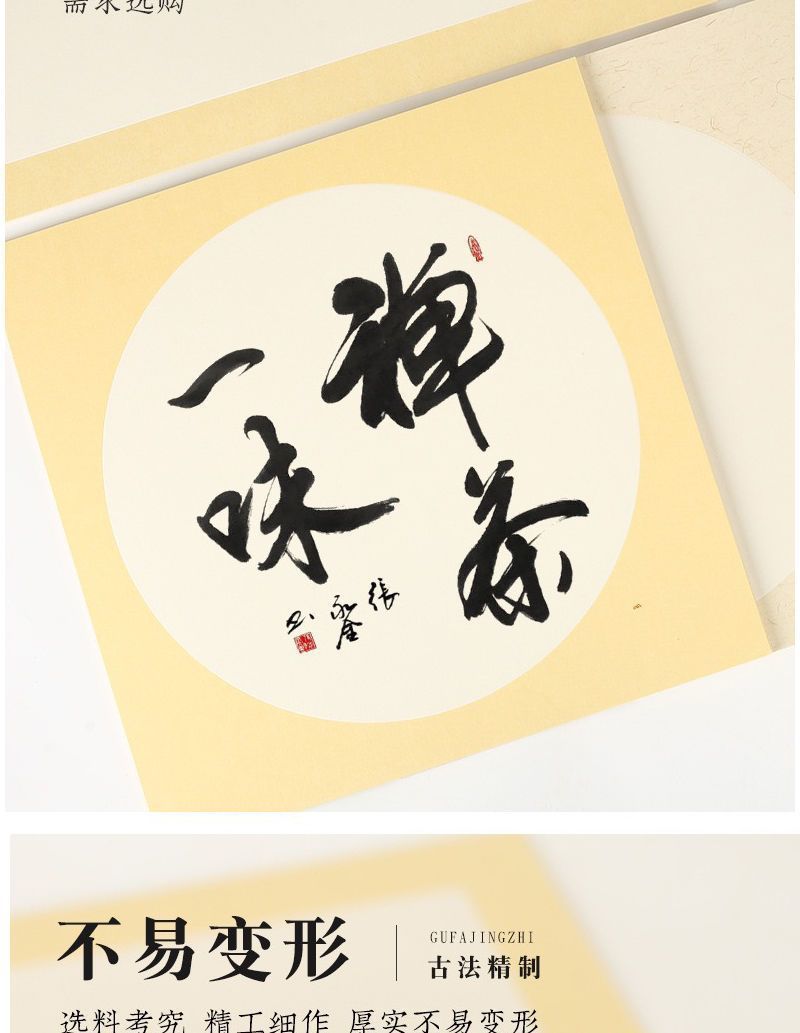 需求选购
禅茶
一味
不易变形
GUFAJINGZHI
古法精制
选料考究 精工细作 厚实不易变形